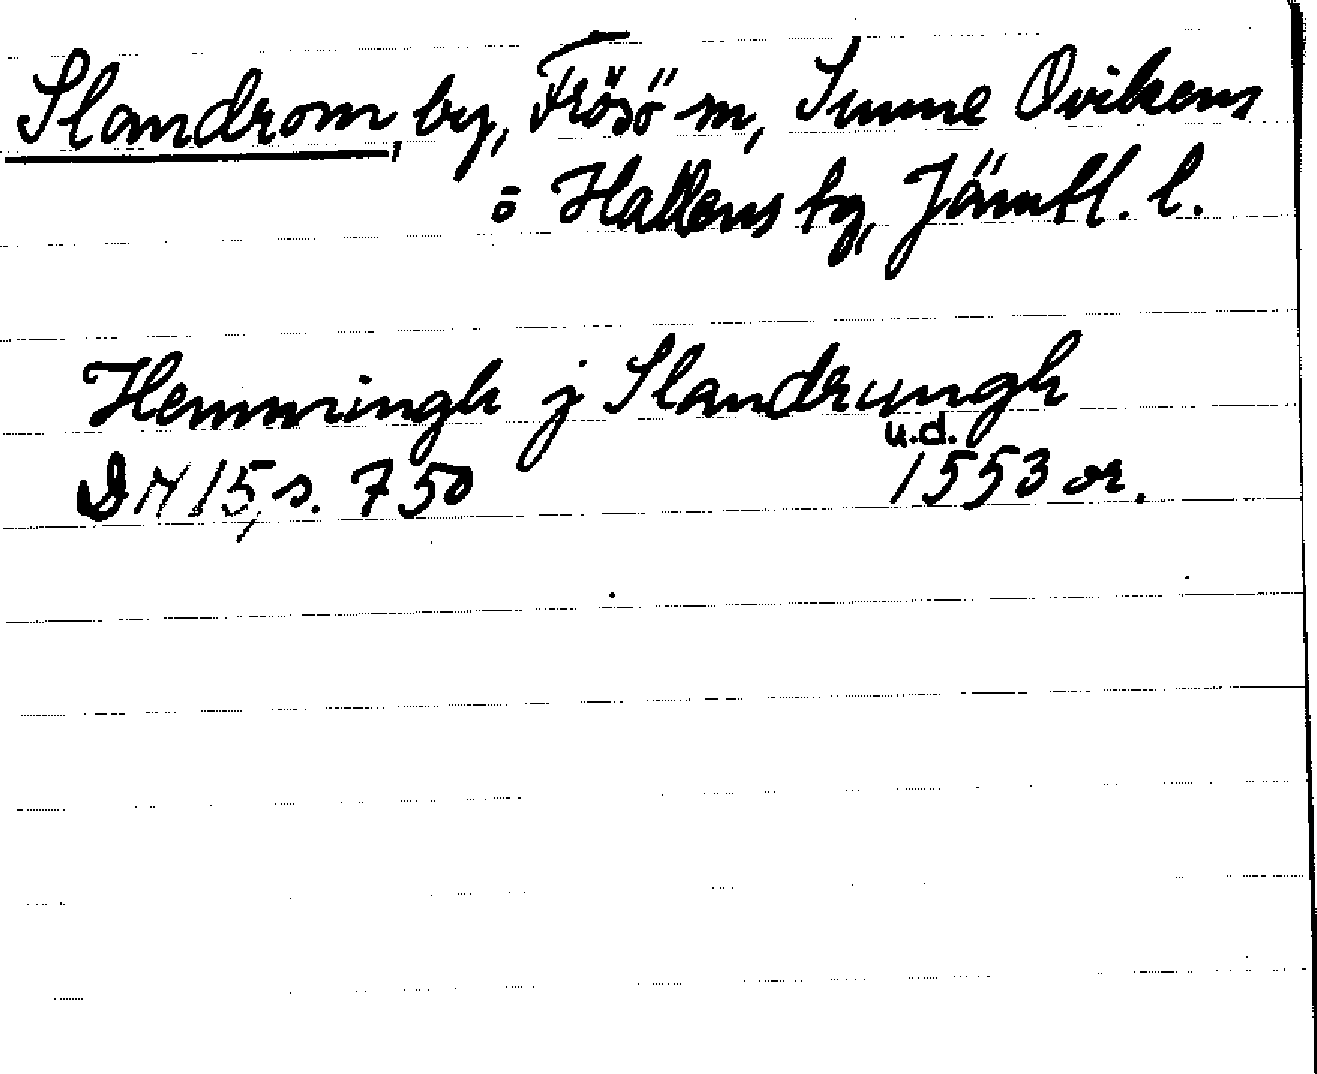 Slandrom, by, Frösö sn, Sunne Ovikens
o Hallens tg, Jämtl. l.
Hemmingh j Slandrungh
u.d.
DN 15, s. 750 1553 or.